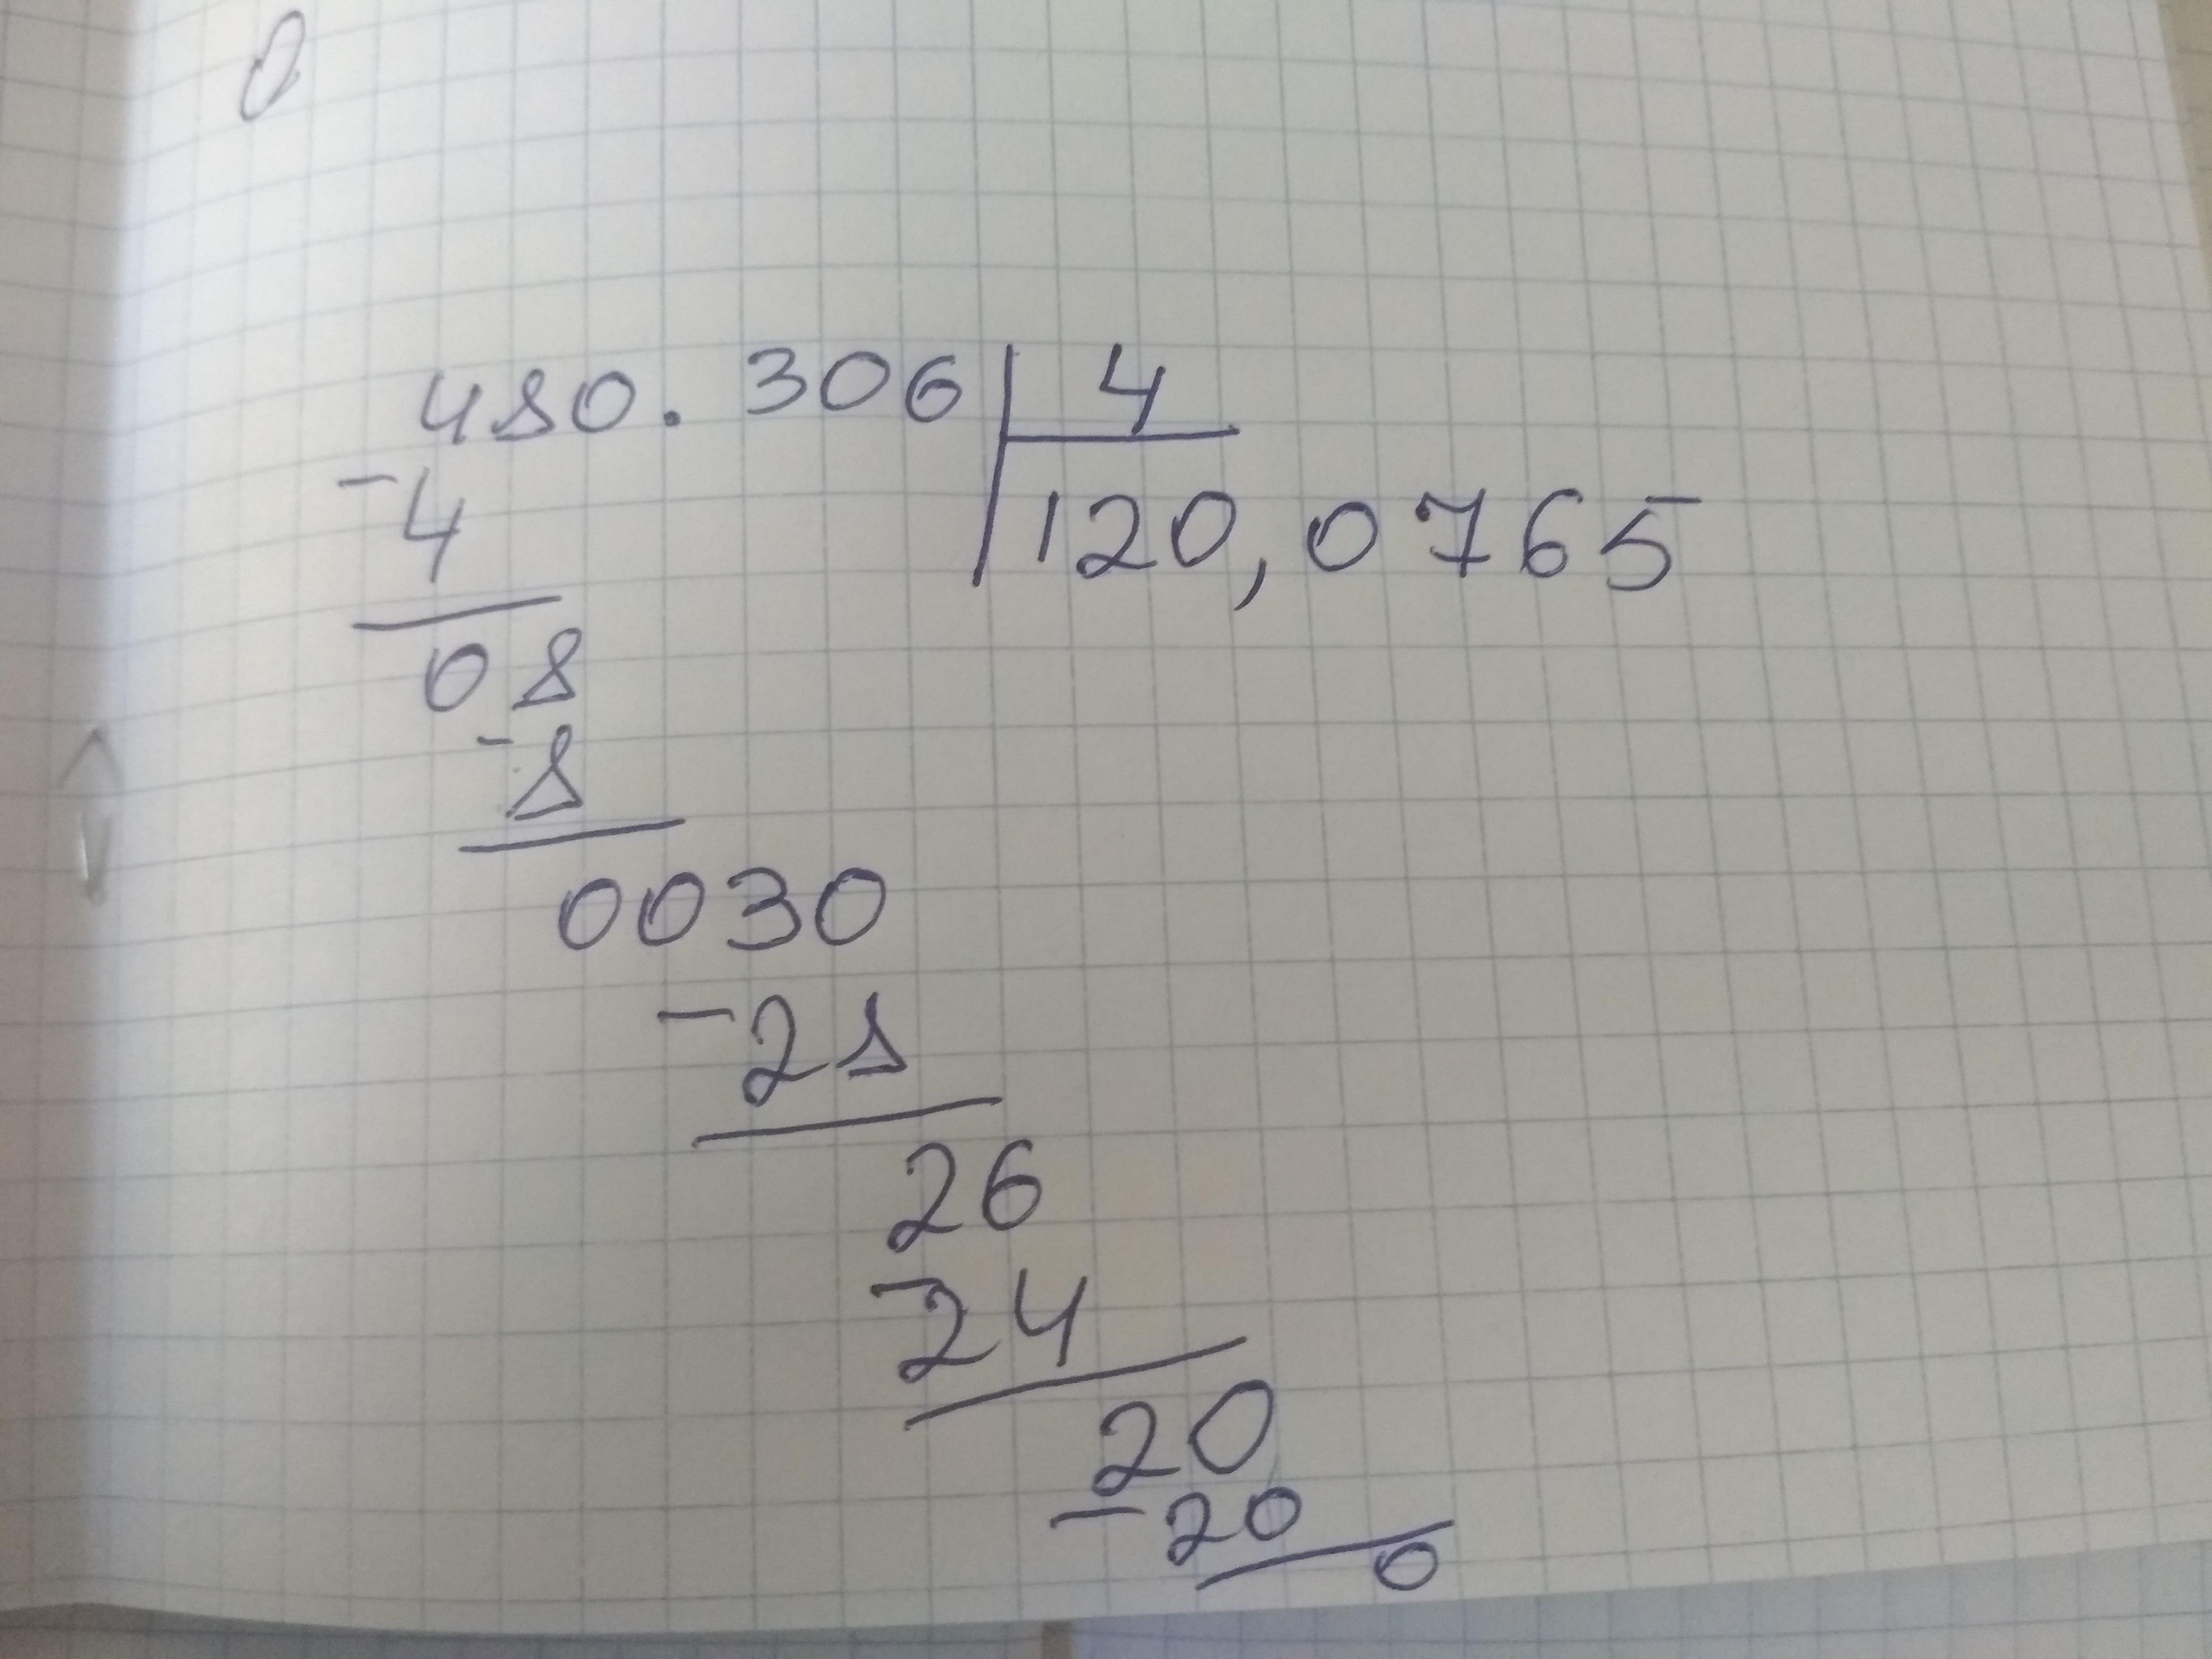 0
480.306 | 4
-4 120,0765
08
-8
0030
-28
26
-24
20
-20
0